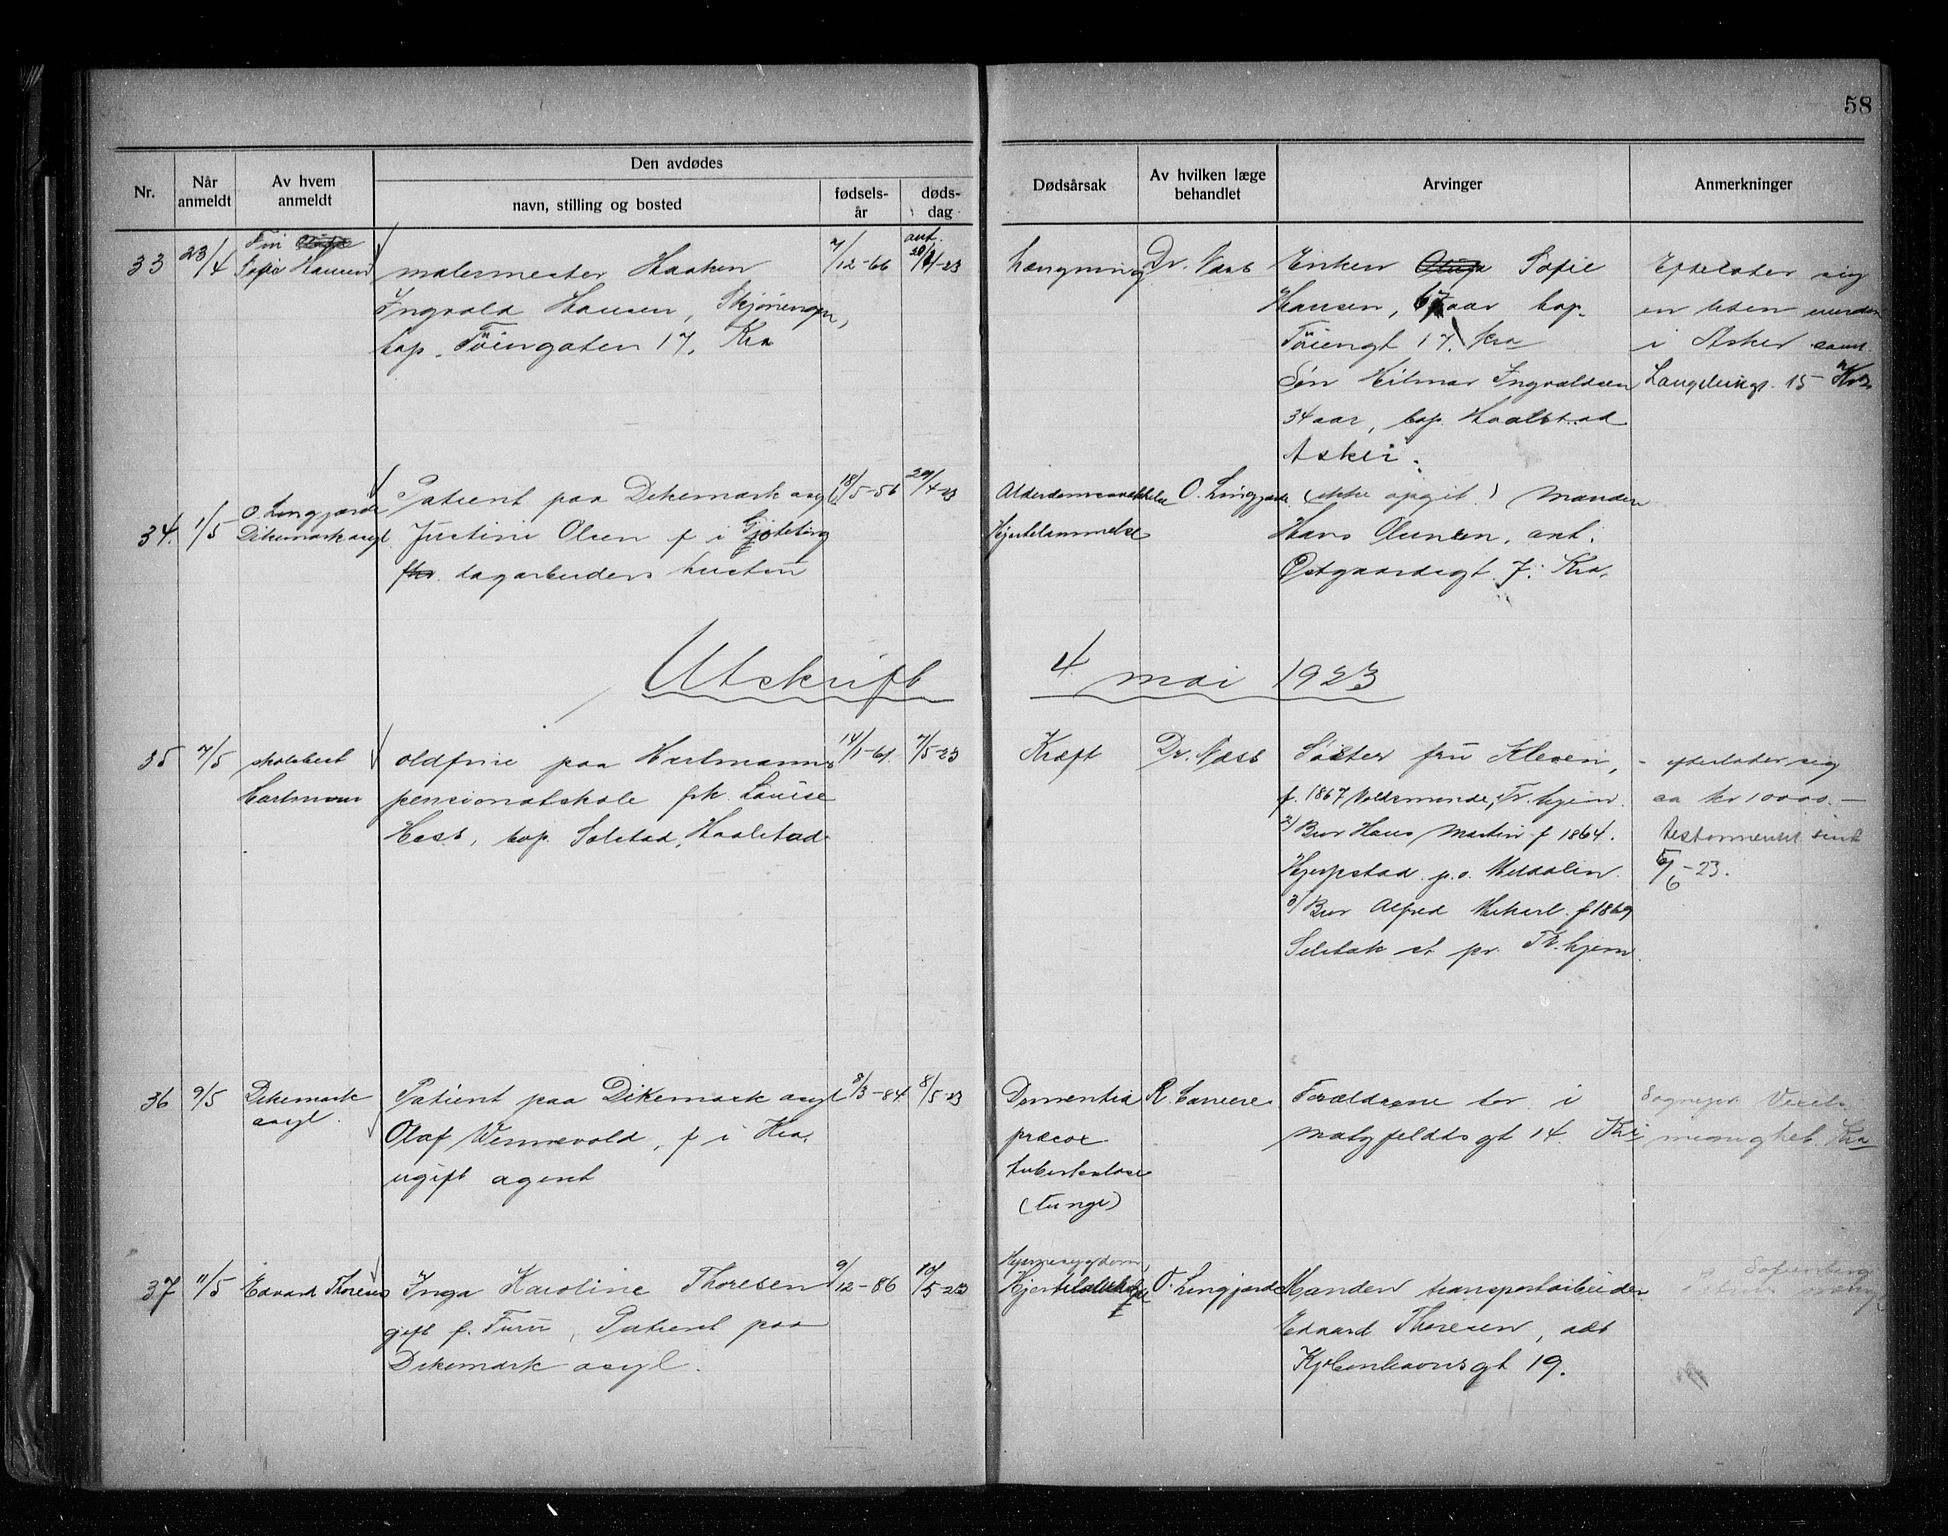 58
Nr.
Når anmeldt
Av hvem anmeldt
Den avdødes
navn, stilling og bosted
fødsels-år
døds-dag
Dødsårsak
Av hvilken læge behandlet
Arvinger
Anmerkninger
33
23/4
Sofie Hansen
malermester Haaken
Ingvald Hansen,
bop. Tøiengaten 17, Kra
7/12-66
ant.
20/4-23
hængning
Dr. Næss
Enken Sofie
Hansen, aar bop.
Tøiengt 17, Kra
Søn Hilmar Ingvaldsen
34 aar, bop. Haalstad
Asker.
Efterlater sig
en liten
i Asker samt
15
34.
1/5
O. Lingjærde
Dikemark asyl
Patient paa Dikemark asyl
Justine Olsen f i Gøteborg
dagarbeiders hustru
18/5-56
29/4-23
Alderdomssvækkelse
Hjertelammelse
O. Lingjærde
(ikke opgit.) Manden
Hans Olsen, ant.
Østgaardsgt. 7. Kra.
Utskrift
4 mai 1923
35
7/5
skolebest
Hartmann
oldfrue paa Hartmanns
pensionatskole frk. Louise
Hess, bop. Solstad, Haalstad
14/1-61.
7/5-23
Kræft
Dr. Næss
Søster fru Klesen,
f. 1867, Tr.hjem.
2/ Bror Hans Martin f 1864.
p.o. Meldalen.
3/ Bror Alfred f 1869
st pr. Tr.hjem.
- efterlater sig
ca kr 10000.-
testamentet sint
5/6-23.
36
9/5
Dikemark
asyl.
Patient paa Dikemark asyl
Olaf Wennevold, f i Kra.
ugift agent
3/3-84
8/5-23
Dementia
præcox
tuberkulose
(lunge)
Forældrene bor i
Motzfeldtsgt 14. Kr
menighet. Kra
37
11/5
Edvard Thoresen
Inga Karoline Thoresen
gift f. Furu, Patient paa
Dikemark asyl.
9/12-86
10/5-23
Hjernesygdom,
O. Lingjærde
Manden transportarbeider
Edvard Thoresen, adr
Kjøbenhavnsgt 19.
Sofienberg